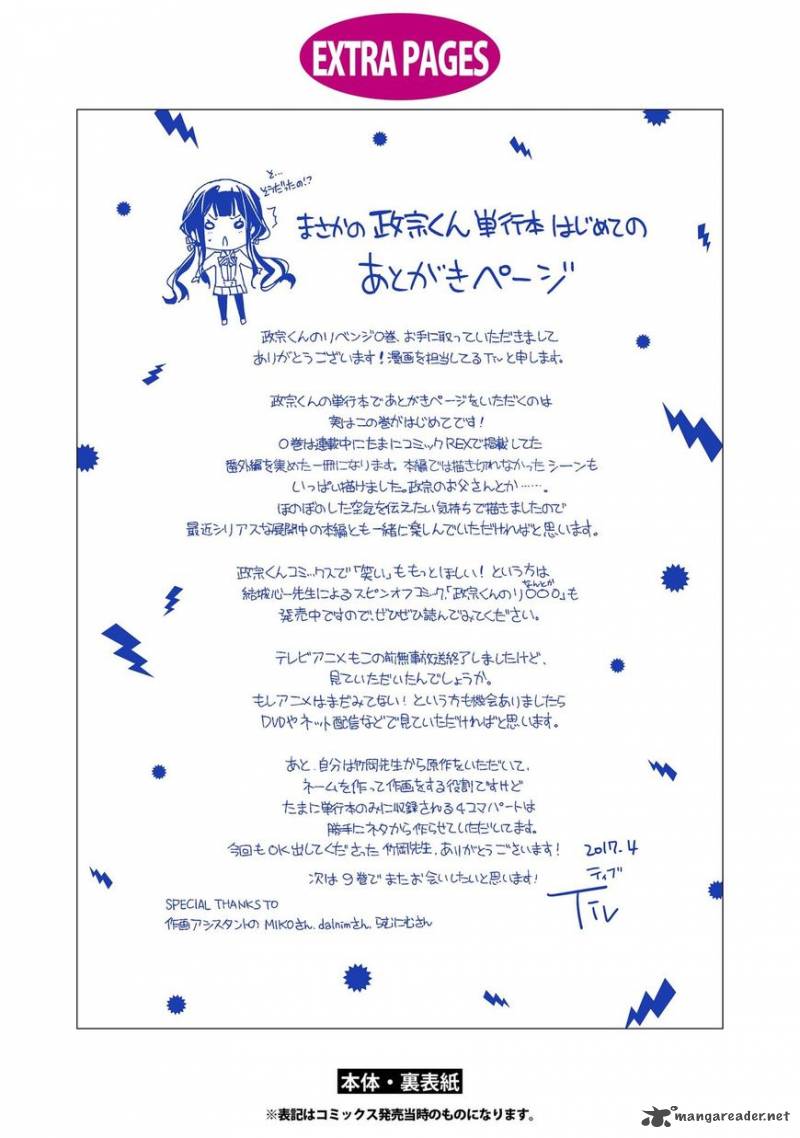 EXTRA PAGES
え…
そうだったの!?
まさかの 政宗くん 単行本 はじめての
あとがきページ
政宗くんのリベンジ0巻、お手に取っていただきまして
ありがとうございます!漫画を担当してるTivと申します。
政宗くんの単行本であとがきページをいただくのは
実はこの巻がはじめてです!
0巻は連載中にたまにコミックREXで掲載してた
番外編を集めた一冊になります。本編では描き切れなかったシーンも
いっぱい描けました。政宗のお父さんとか……。
ほのぼのした空気を伝えたい気持ちで描きましたので
最近シリアスな展開中の本編とも一緒に楽しんでいただければと思います。
政宗くんコミックスで「笑い」ももっとほしい!という方は
なんとか
結城心一先生によるスピンオフコミック、「政宗くんのリ○○○」も
発売中ですので、ぜひぜひ読んでみてください。
テレビアニメもこの前無事放送終了しましたけど、
見ていただいたんでしょうか。
もしアニメはまだみてない!という方も機会ありましたら
DVDやネット配信などで見ていただければと思います。
あと、自分は竹岡先生から原作をいただいて、
ネームを作って作画をする役割ですけど
たまに単行本のみに収録される4コマパートは
勝手にネタから作らせていただいてます。
今回もOK出してくださった竹岡先生、ありがとうございます!
次は9巻でまたお会いしたいと思います!
2017.4
ティブ
Tiv
SPECIAL THANKS TO
作画アシスタントの MIKOさん、dalnimさん、らむにむさん
本体・裏表紙
※表記はコミックス発売当時のものになります。
mangareader.net